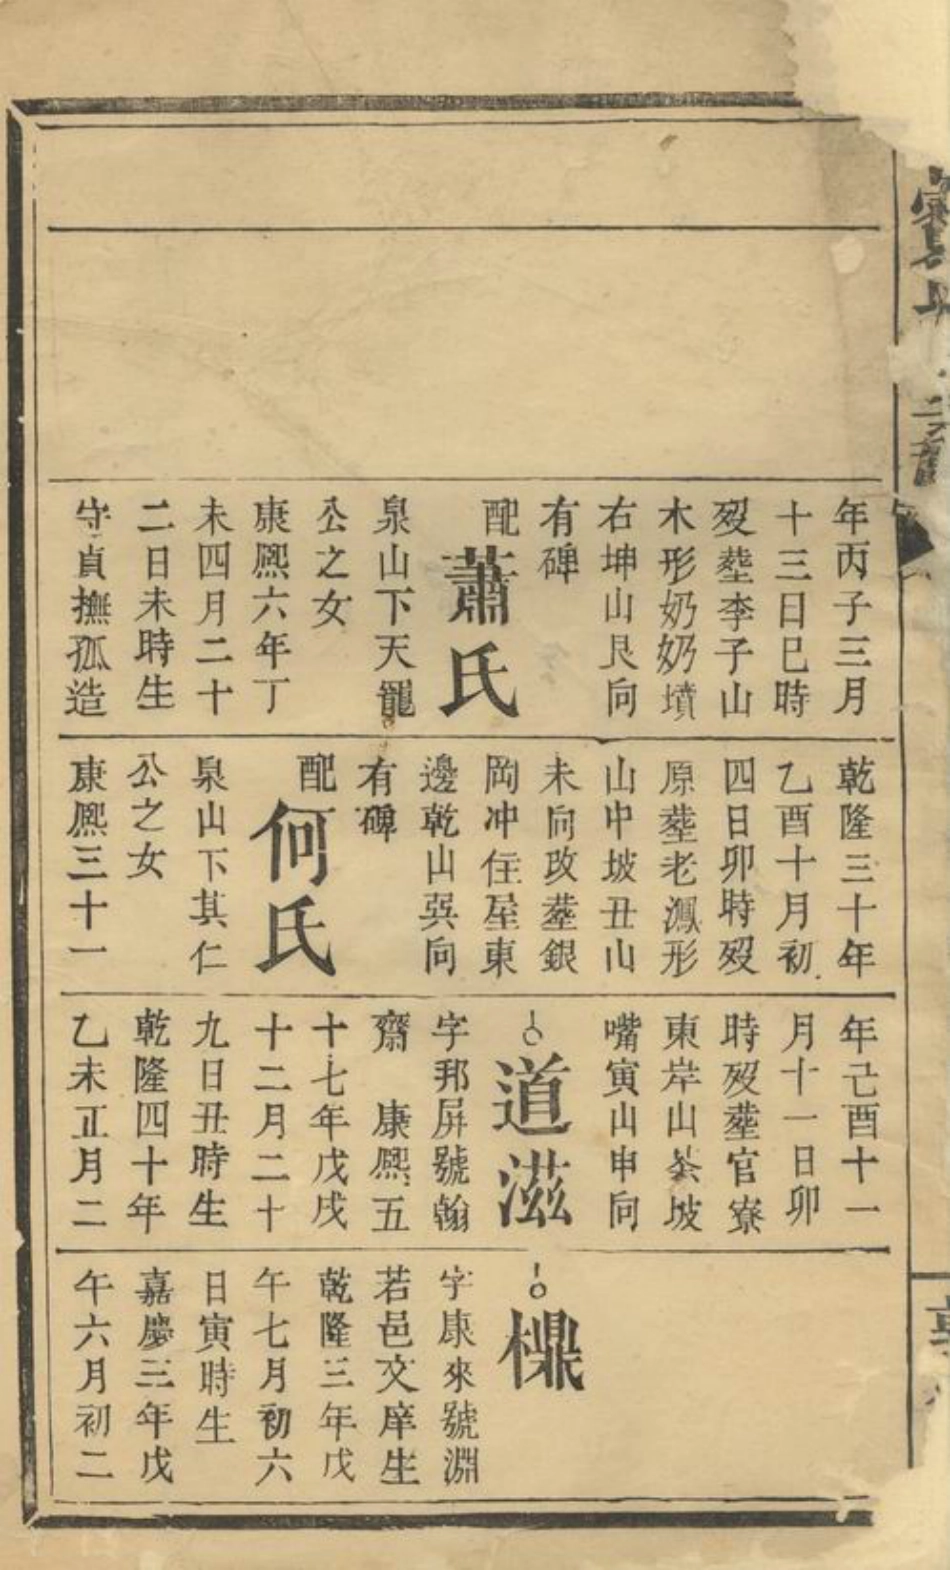 年丙子三月
十三日巳時
歿塟李子山
木形奶奶墳
右坤山艮向
有碑
配
蕭氏
泉山下天龍
公之女
康熙六年丁
未四月二十
二日未時生
守貞撫孤造
乾隆三十年
乙酉十月初
四日卯時歿
原塟老鳳形
山中坡丑山
未向改塟銀
岡冲住屋東
邊乾山巽向
有碑
配
何氏
泉山下其仁
公之女
康熙三十一
年己酉十一
月十一日卯
時歿塟官寮
東岸山弟坡
嘴寅山申向
道滋
字邦屏號翰
齋 康熙五
十七年戊戌
十二月二十
九日丑時生
乾隆四十年
乙未正月二
櫆
字康來號淵
若邑文庠生
乾隆三年戊
午七月初六
日寅時生
嘉慶三年戊
午六月初二